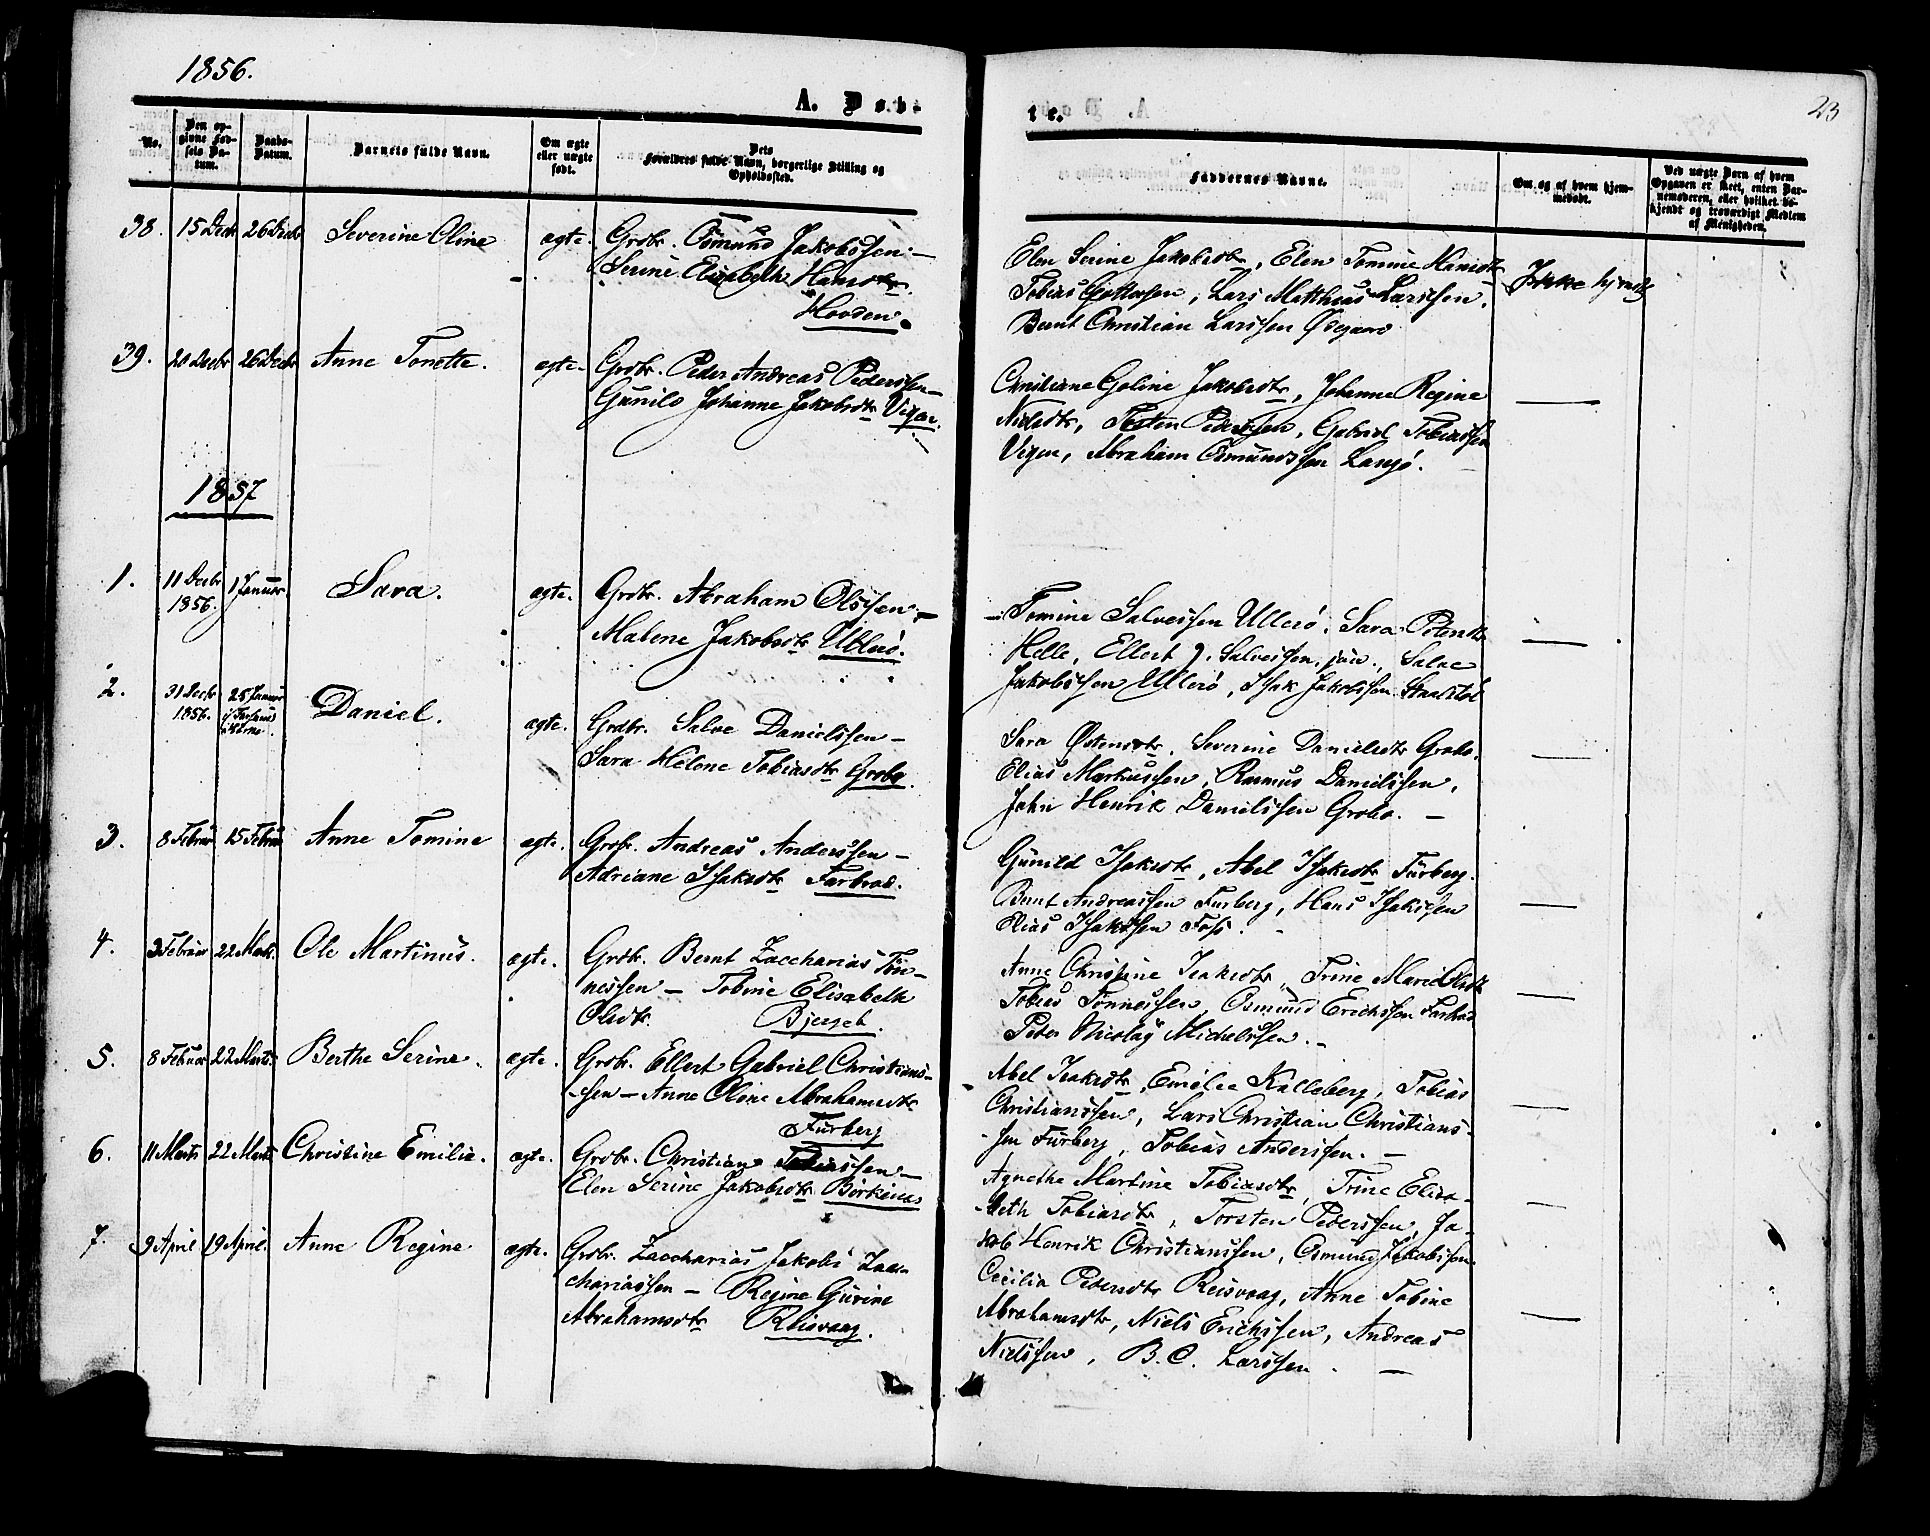 1856.
23
A. Døb-
te.
No.
Den op-
givne Fød-
sels Da-
tum.
Daabs-
Datum.
Barnets fulde Navn.
Om ægte
eller uægte
født.
Dets
Forældres fulde Navn, borgerlige Stilling og
Opholdssted.
Faddernes Navne.
Om og af hvem hjem-
medøbt.
Ved uægte Barn af hvem
Opgaven er skeet, enten Bar-
nemoderen, eller hvilket be-
kjendt og troværdigt Medlem
af Menigheden.
38. 15 Decbr 26 Decbr Severine Oline ægte. Grdbr. Osmund Jakobssen –
Serine Elisabeth Hansdtr.
Hovden.
Elen Serine Jakobsdtr, Elen Tomine Hansdtr
Tobias Gottersen, Lars Matthias Larssen,
Bernt Christian Larssen Øvgaard
Ikke hjemdb.
39. 20 Decbr 26 Decbr Anne Tonette. ægte. Grdbr. Peder Andreas Pederssen –
Gunild Johanne Jakobsdtr Vigen.
Christiane Goline Jakobsdtr, Johanne Regine
Nielsdtr, Torsten Pederssen, Gabriel Tobiassen
Vigen, Abraham Osmundssen Langø.
1857
1. 11 Decbr
1856. 1 Januar. Sara. ægte. Grdbr. Abraham Olssen –
Malene Jakobsdtr Ullerø.
Tomine Salvessen Ullerø, Sara Petersdtr
Helle, Ellert J. Salvessen, jun., Salve
Jakobssen Ullerø, Isak Jakobssen
2. 31 Decbr
1856. 25 Januar
i Farsunds
Kirke. Daniel. ægte. Grdbr. Salve Danielssen –
Sara Helene Tobiasdtr Grobo.
Sara Østensdtr, Severine Danielsdtr Grobo.
Elias Markussen, Rasmus Danielssen,
John Henrik Danielssen Grobo. –
3. 8 Februar 15 Februar Anne Tomine ægte. Grdbr. Andreas Anderssen –
Adriane Isaksdtr Farbrod.
Gunild Isaksdtr, Abel Isaksdtr Furberg.
Bernt Andreassen Furberg, Hans Isakssen
Elias Isakssen Foss.
4. 3 Februar 22 Marts. Ole Martinus. ægte. Grdbr. Bernt Zaccharias Tøn-
nessen – Tobine Elisabeth
Olsdtr. Bjerseb.
Anne Christine Isaksdtr, Trine Marie Olsdtr
Tobias Tønnessen, Osmund Erichssen Farbrod
Peter Nicolay Michelssen. –
5. 8 Februar 22 Marts. Berthe Serine. ægte. Grdbr. Ellert Gabriel Christians-
-sen – Anne Oline Abrahamsdtr
Furberg
Abel Isaksdtr, Emilie Kalleberg, Tobias
Christianssen, Lars Christian Christians-
-sen Furberg, Tobias Anderssen. –
6. 11 Marts 22 Marts Christine Emilie. ægte. Grdbr. Christian Tobiassen –
Elen Serine Jakobsdtr Børkenes
Agnethe Martine Tobiasdtr, Trine Elisa-
-beth Tobiasdtr, Torsten Pederssen, Ja-
kob Henrik Christianssen, Osmund Jakobssen.
7. 9 April 19 April. Anne Regine ægte. Grdbr. Zaccharias Jakobi Zac-
chariassen – Regine Gurine
Abrahamsdtr Reisvaag.
Cecilia Pedersdtr Reisvaag, Anne Tobine
Abrahamsdtr, Niels Erichssen, Andreas
Nielssen, B. C. Larssen. –